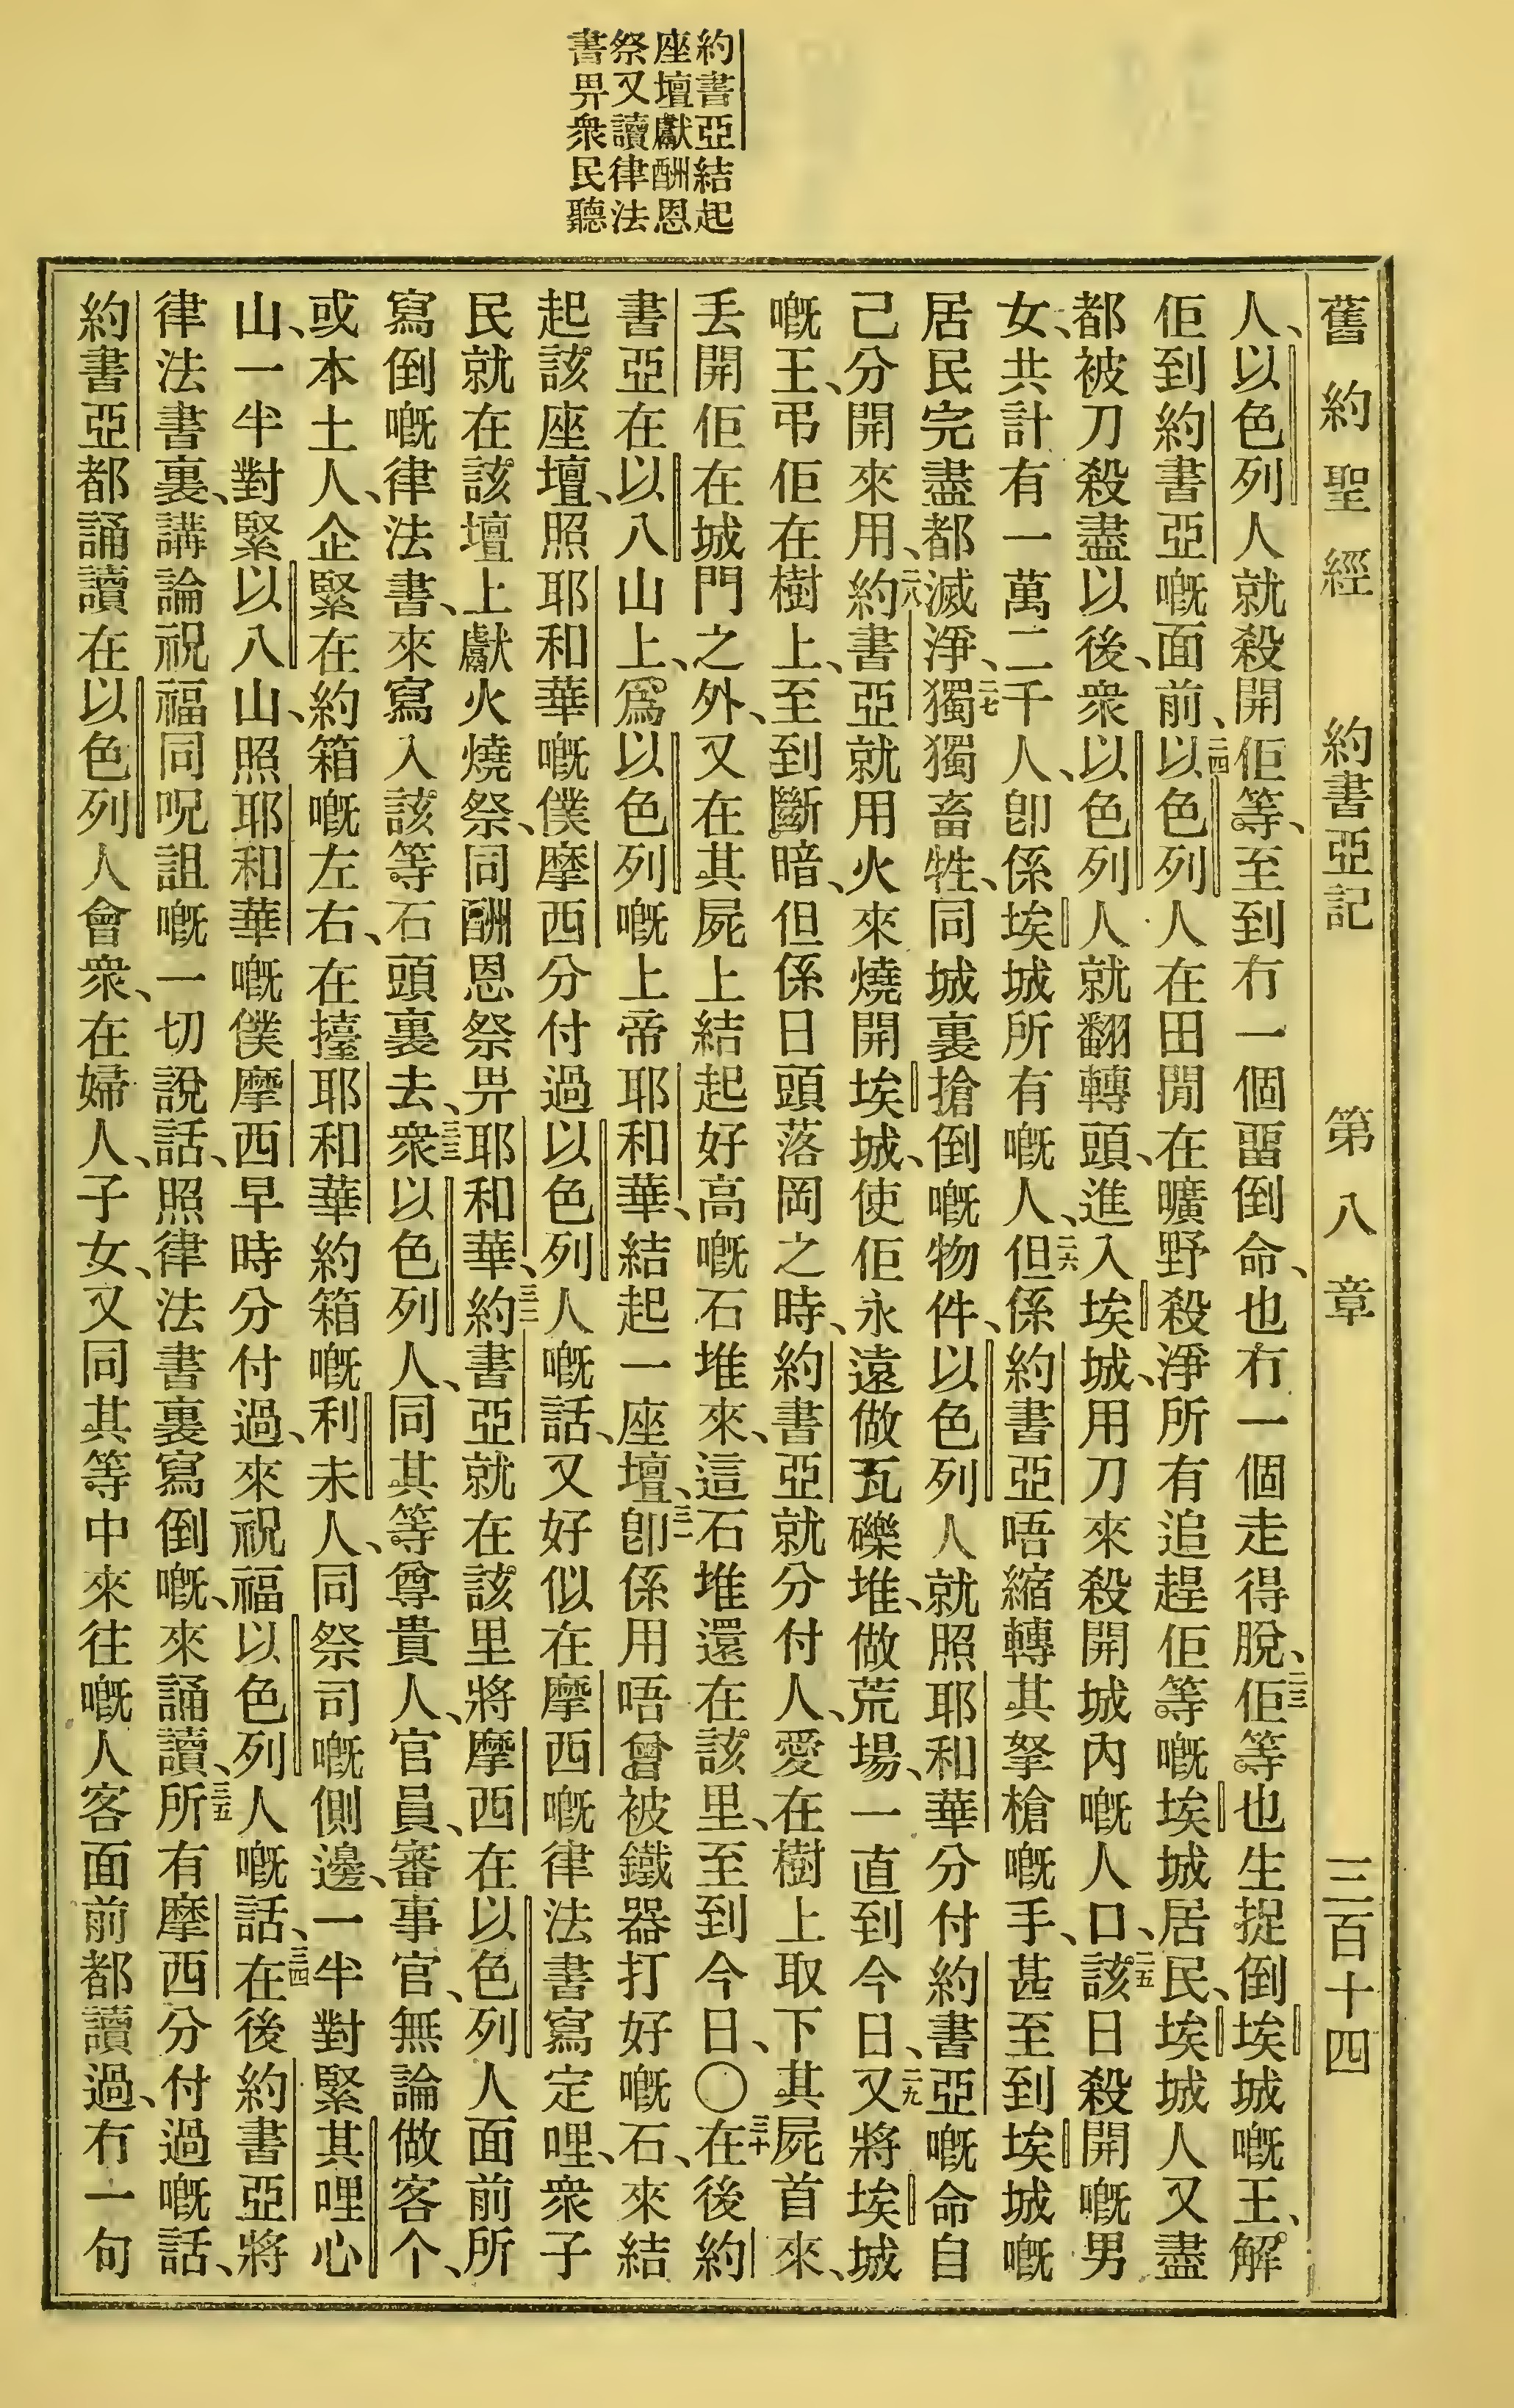 約書亞結起
座壇獻酬恩
祭又讀律法
書畀衆民聽
舊約聖經 約書亞記 第八章 三百十四
人、以色列人就殺開佢等、至到冇一個畱倒命、也冇一個走得脫、二三佢等也生捉倒埃城嘅王、解
佢到約書亞嘅面前、二四以色列人在田閒在曠野殺淨所有追趕佢等嘅埃城居民、埃城人又盡
都被刀殺盡以後、衆以色列人就翻轉頭、進入埃城、用刀來殺開城內嘅人口、二五該日殺開嘅男
女、共計有一萬二千人、卽係埃城所有嘅人、二六但係約書亞唔縮轉其拏槍嘅手、甚至到埃城嘅
居民完盡都滅淨、二七獨獨畜牲、同城裏搶倒嘅物件、以色列人就照耶和華分付約書亞嘅命自
己分開來用、二八約書亞就用火來燒開埃城、使佢永遠做瓦礫堆、做荒場、一直到今日、二九又將埃城
嘅王、弔佢在樹上、至到斷暗、但係日頭落岡之時、約書亞就分付人、愛在樹上取下其屍首來、
丢開佢在城門之外、又在其屍上結起好高嘅石堆來、這石堆還在該里、至到今日、〇三十在後約
書亞在以八山上、爲以色列嘅上帝耶和華、結起一座壇、三一卽係用唔曾被鐵器打好嘅石、來結
起該座壇、照耶和華嘅僕摩西分付過以色列人嘅話、又好似在摩西嘅律法書寫定哩、衆子
民就在該壇上獻火燒祭、同酬恩祭畀耶和華、三二約書亞就在該里將摩西在以色列人面前所
寫倒嘅律法書、來寫入該等石頭裏去、三三衆以色列人、同其等尊貴人、官員、審事官、無論做客个、
或本土人、企緊在約箱嘅左右、在擡耶和華約箱嘅利未人、同祭司嘅側邊、一半對緊其哩心
山、一半對緊以八山、照耶和華嘅僕摩西早時分付過、來祝福以色列人嘅話、三四在後約書亞將
律法書裏、講論祝福同呪詛嘅一切說話、照律法書裏寫倒嘅、來誦讀、三五所有摩西分付過嘅話、
約書亞都誦讀在以色列人會衆、在婦人、子女、又同其等中來往嘅人客面前都讀過、冇一句